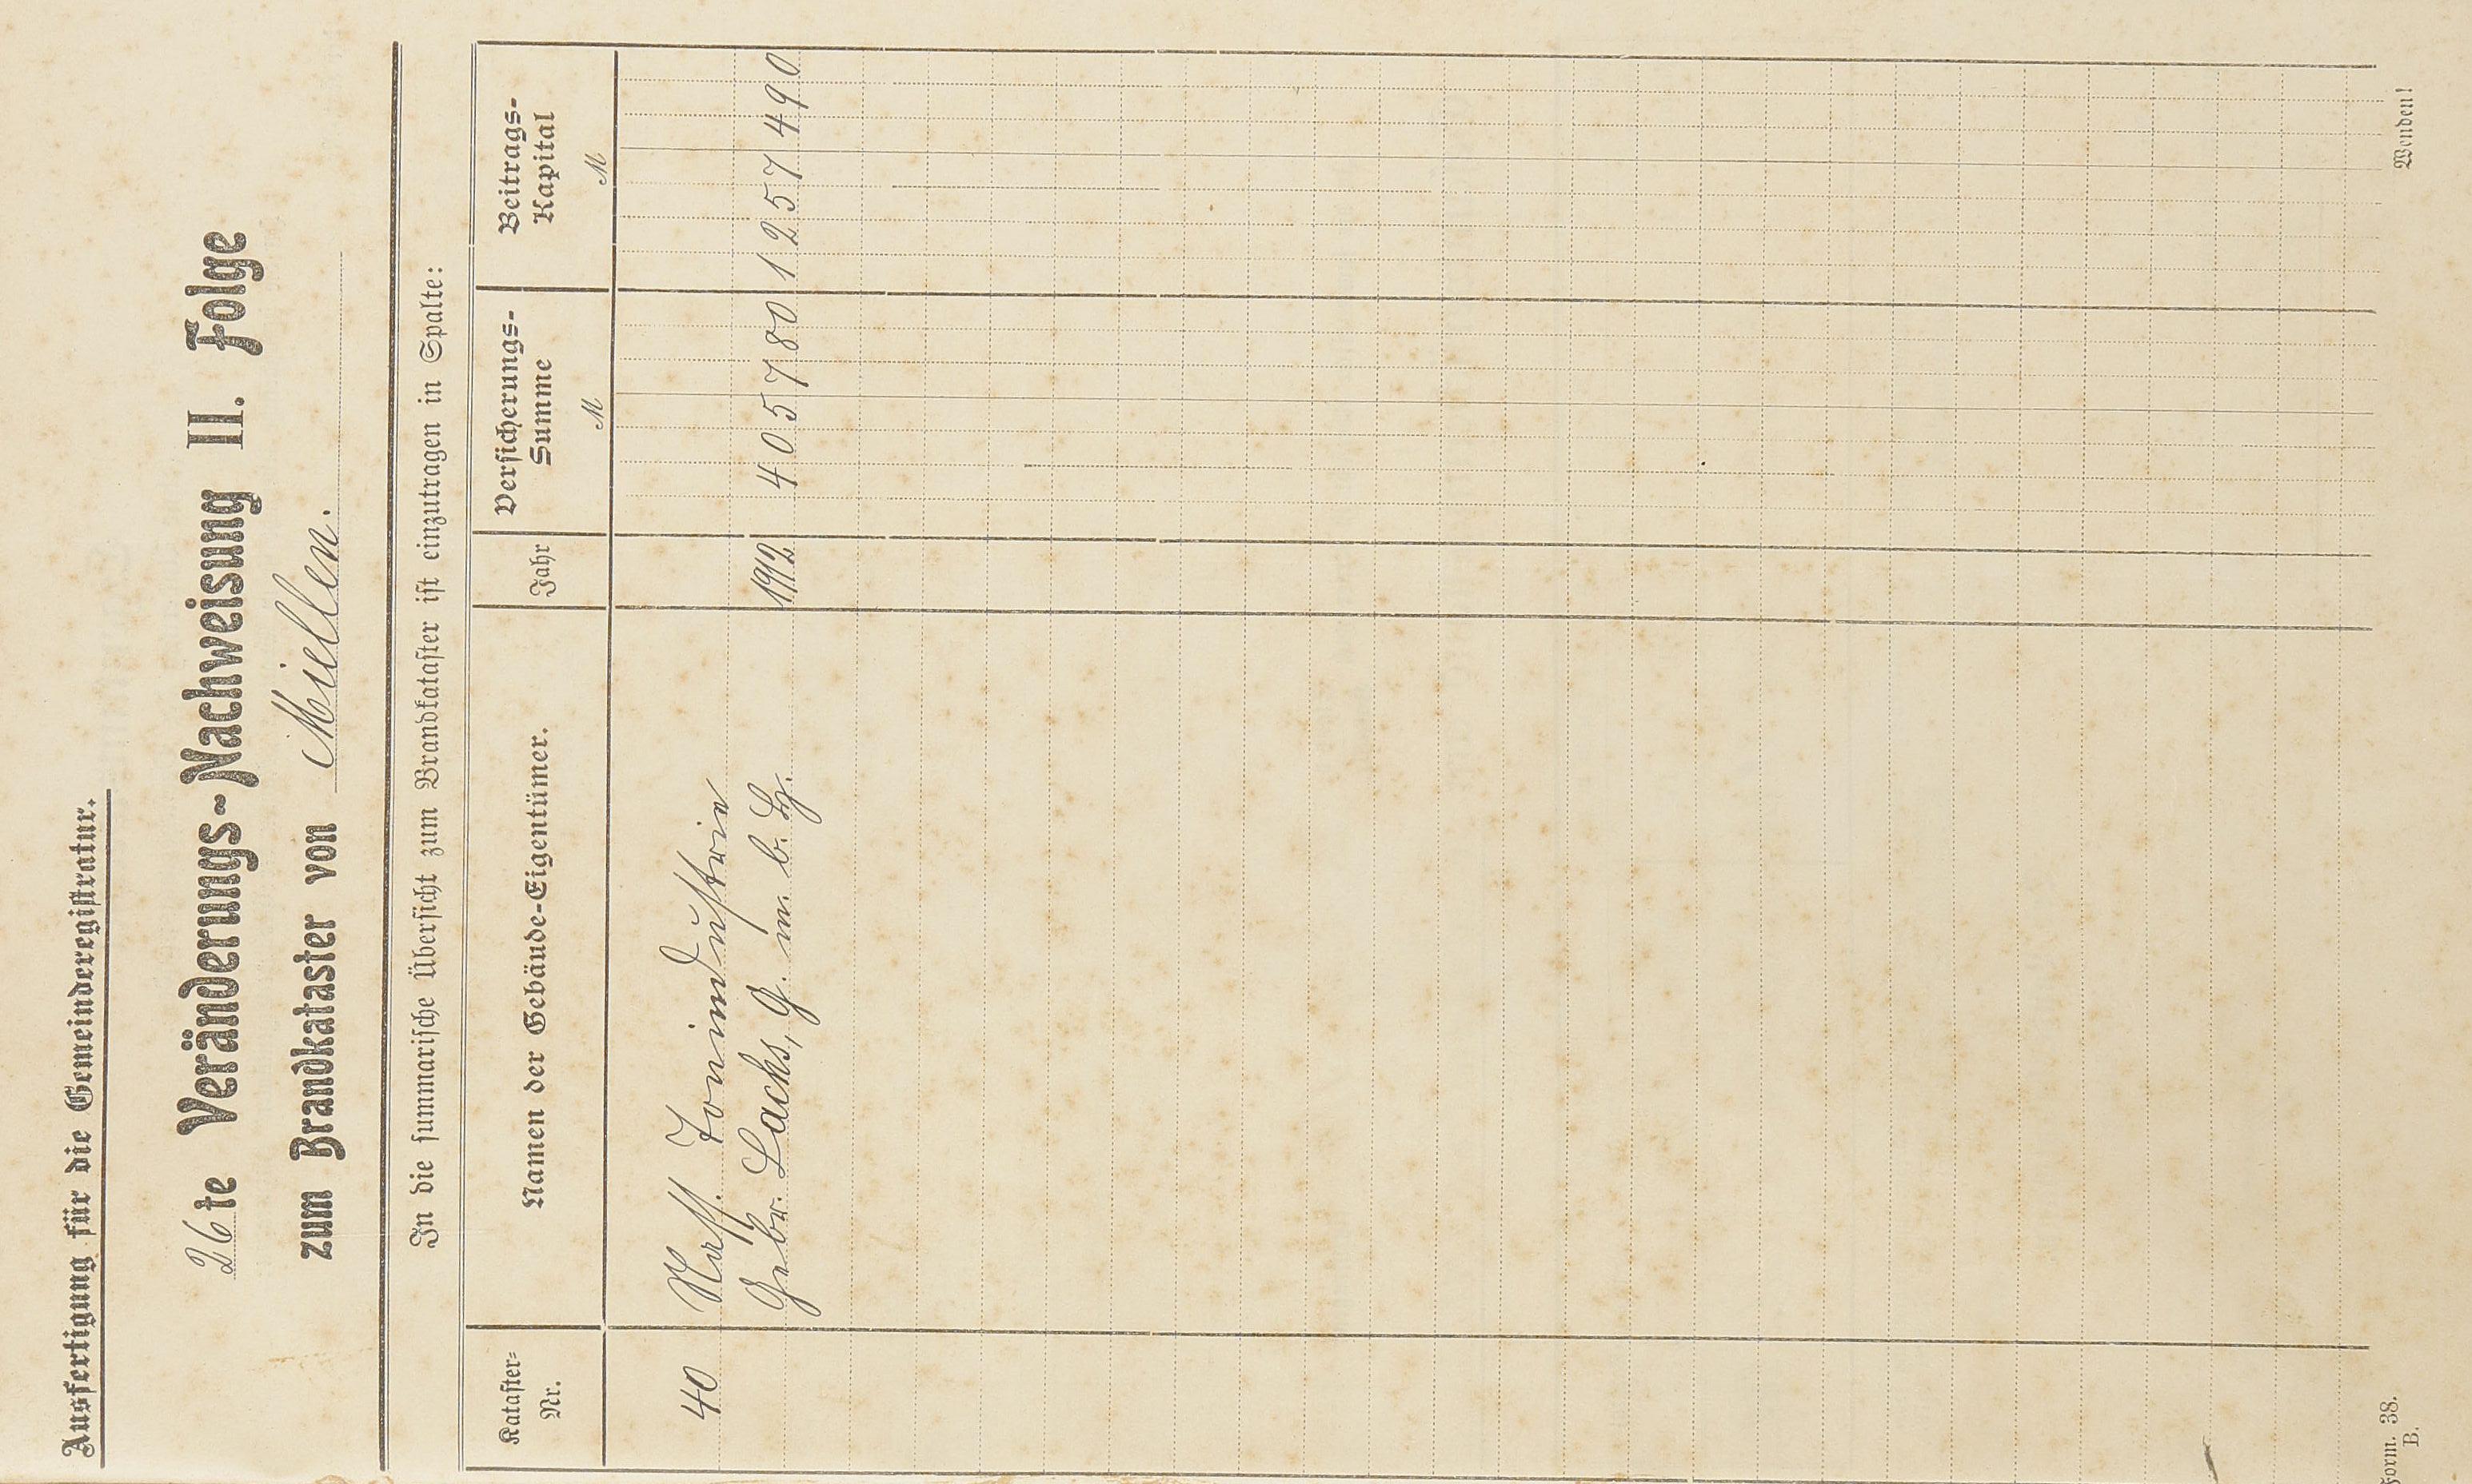 Ausfertigung für die Gemeinderegistratur.
26te Veränderungs-Nachweisung II. Folge
zum Brandkataster von Miellen.
In die summarische Übersicht zum Brandkataster ist einzutragen in Spalte:
Kataster-Nr. Namen der Gebäude-Eigentümer. Jahr Versicherungs-Summe M Beitrags-Kapital M
40 Nass. Tonindustrie
Gebr. Lachs, G. m. b. H. 1912 405780 1257490
Form. 38.
B.
Wenden!